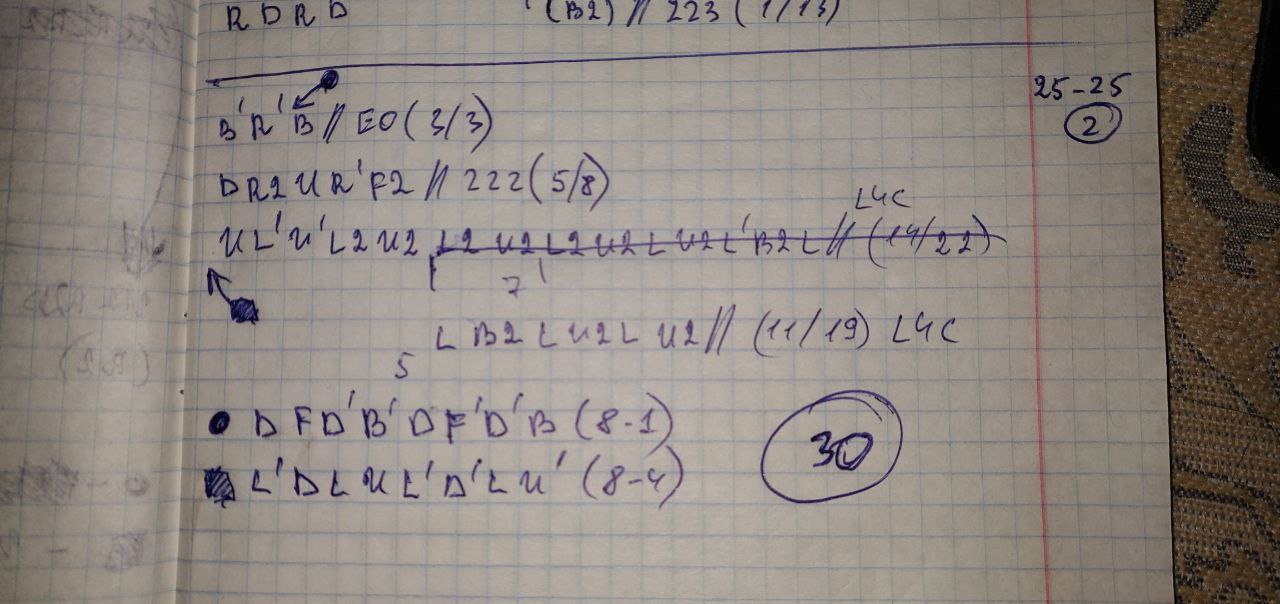 R D R D (B2) // 223 (1/13)
25-25
B' R' B // EO (3/3)
2'
D R2 U R' F2 // 222 (5/8)
L4C
U L' U' L2 U2 L2 U2 L2 U2 L U2 L' B2 L // (14/22)
7'
L B2 L U2 L U2 // (11/19) L4C
5
D F D' B' D F' D' B (8-1)
30
L' D L U L' D' L U' (8-4)